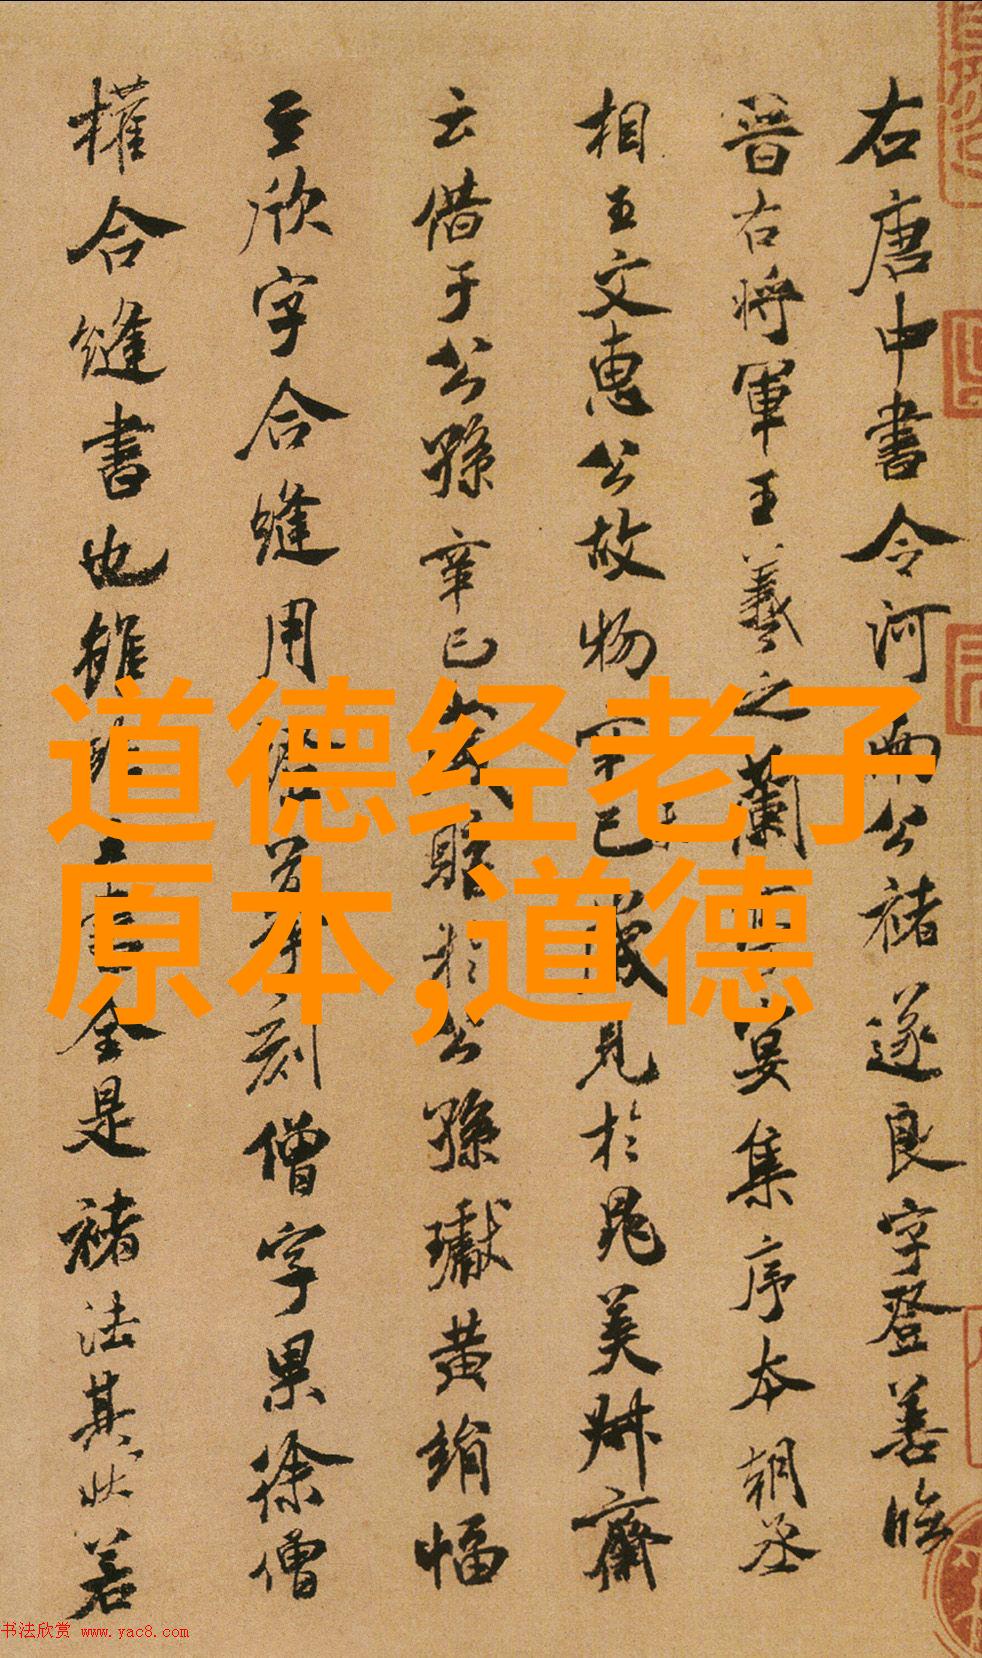 右唐中書令河南公褚遂良字登善臨
晉右將軍王羲之蘭亭宴集序本朝丞
相王文惠公故物辛巳歲見於晁美叔齋
云借于公孫辛巳歲購於公孫瓛黃絹幅
至欣字合縫用證摹刻僧字果徐僧
權合縫書也雖臨王書全是褚法其狀若
道德经老子
原本,道德
书法欣赏 www.yac8.com